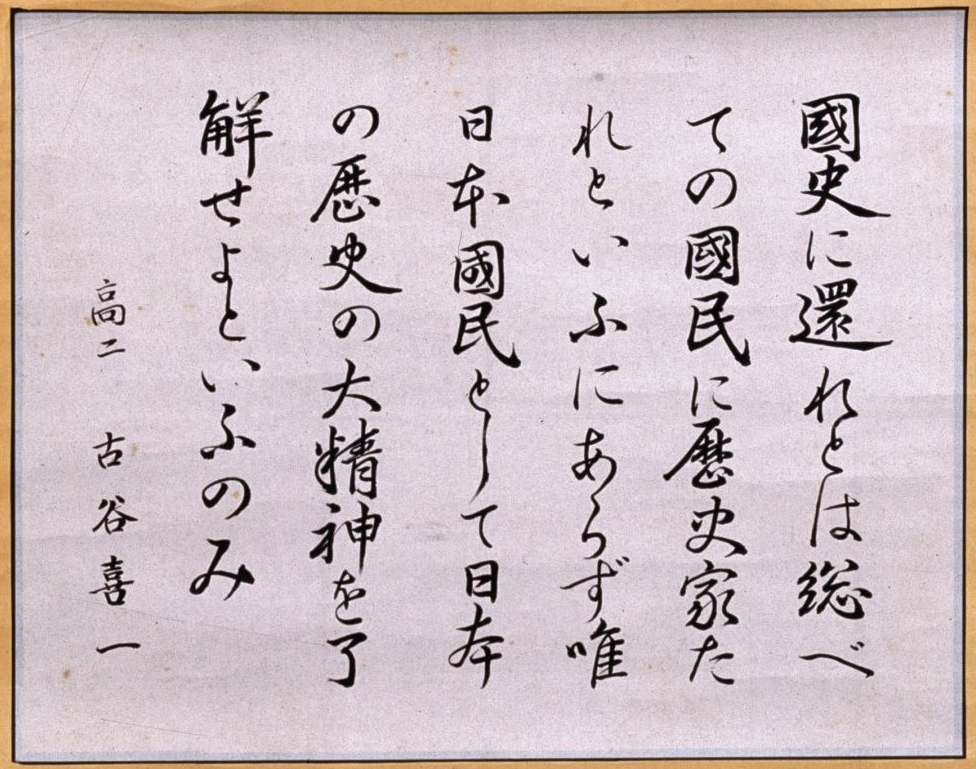 國史に還れとは総べ
ての國民に歴史家た
れといふにあらず唯
日本國民として日本
の歴史の大精神を了
解せよといふのみ
高二 古谷喜一